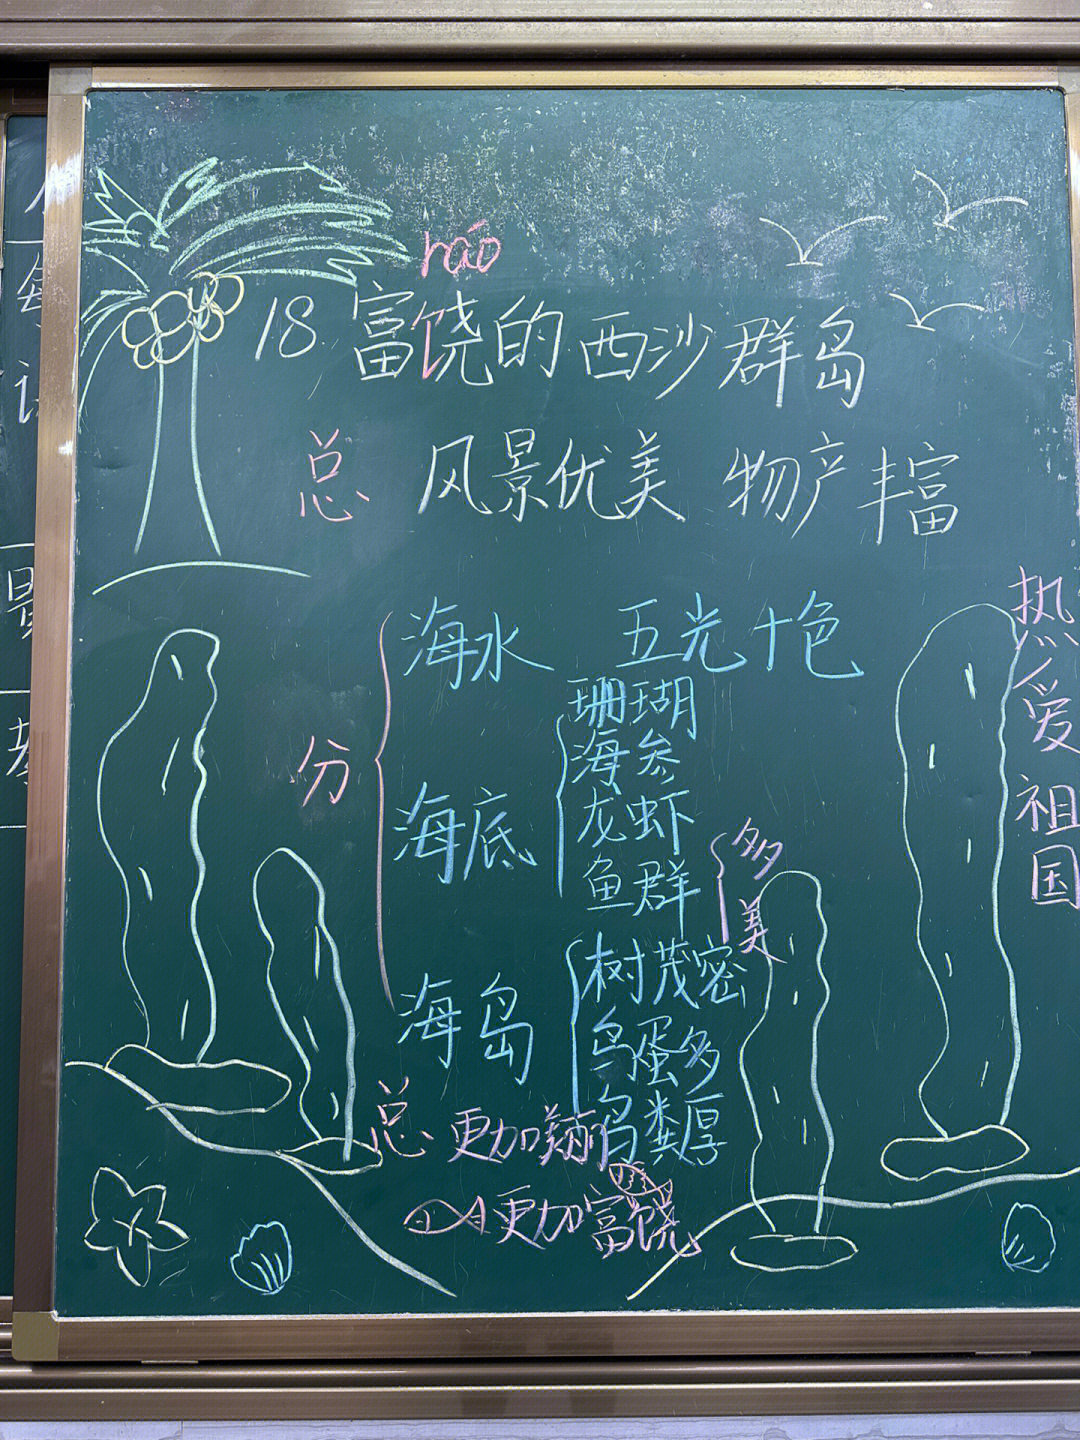 ráo
18 富饶的西沙群岛
总 风景优美 物产丰富
分
海水 五光十色
海底
珊瑚
海参
龙虾
鱼群
多
美
海岛
树茂密
鸟蛋多
鸟粪厚
总 更加美丽
更加富饶
热爱祖国